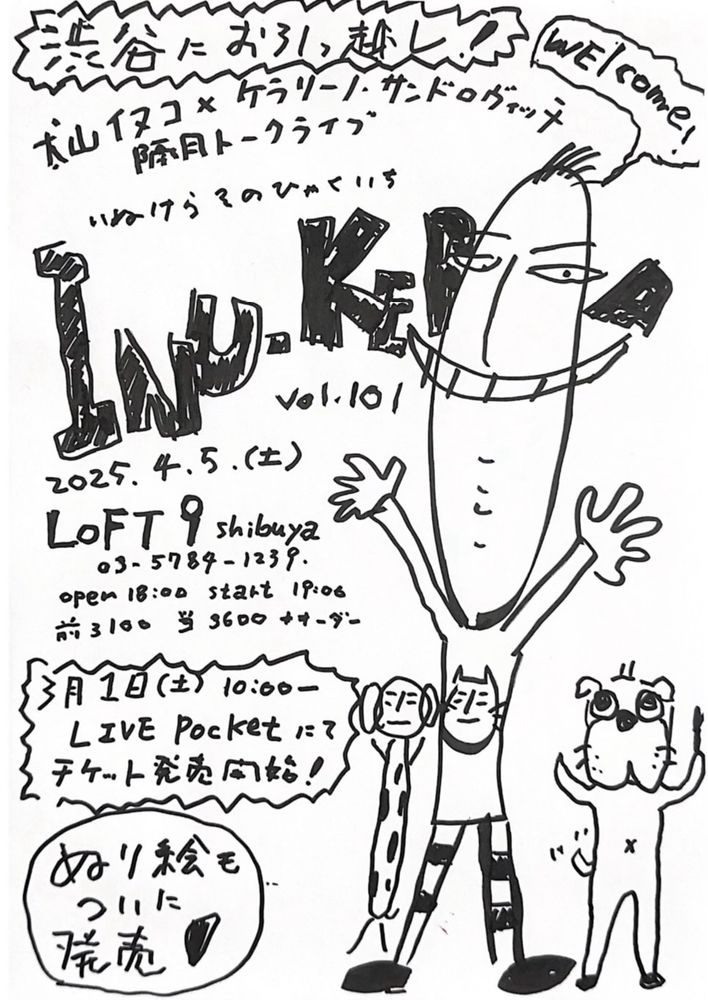 渋谷にお引っ越し!
Welcome!
犬山イヌコ×ケラリーノ・サンドロヴィッチ
隔月トークライブ
いぬけらそのひゃくいち
INU-KERA
vol.101
2025.4.5.(土)
LOFT 9 shibuya
03-5784-1239.
open 18:00 start 19:00
前3100 当3600 +オーダー
3月1日(土) 10:00ー
LIVE Pocketにて
チケット発売開始!
ぬり絵も
ついに
発売